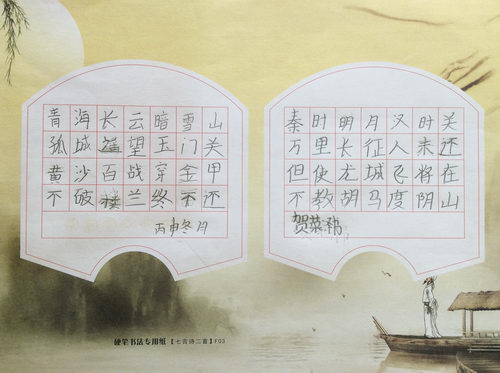 青海长云暗雪山
孤城遥望玉门关
黄沙百战穿金甲
不破楼兰终不还
丙申冬月
秦时明月汉时关
万里长征人未还
但使龙城飞将在
不教胡马度阴山
贺
硬笔书法专用纸【七言诗二首】F03